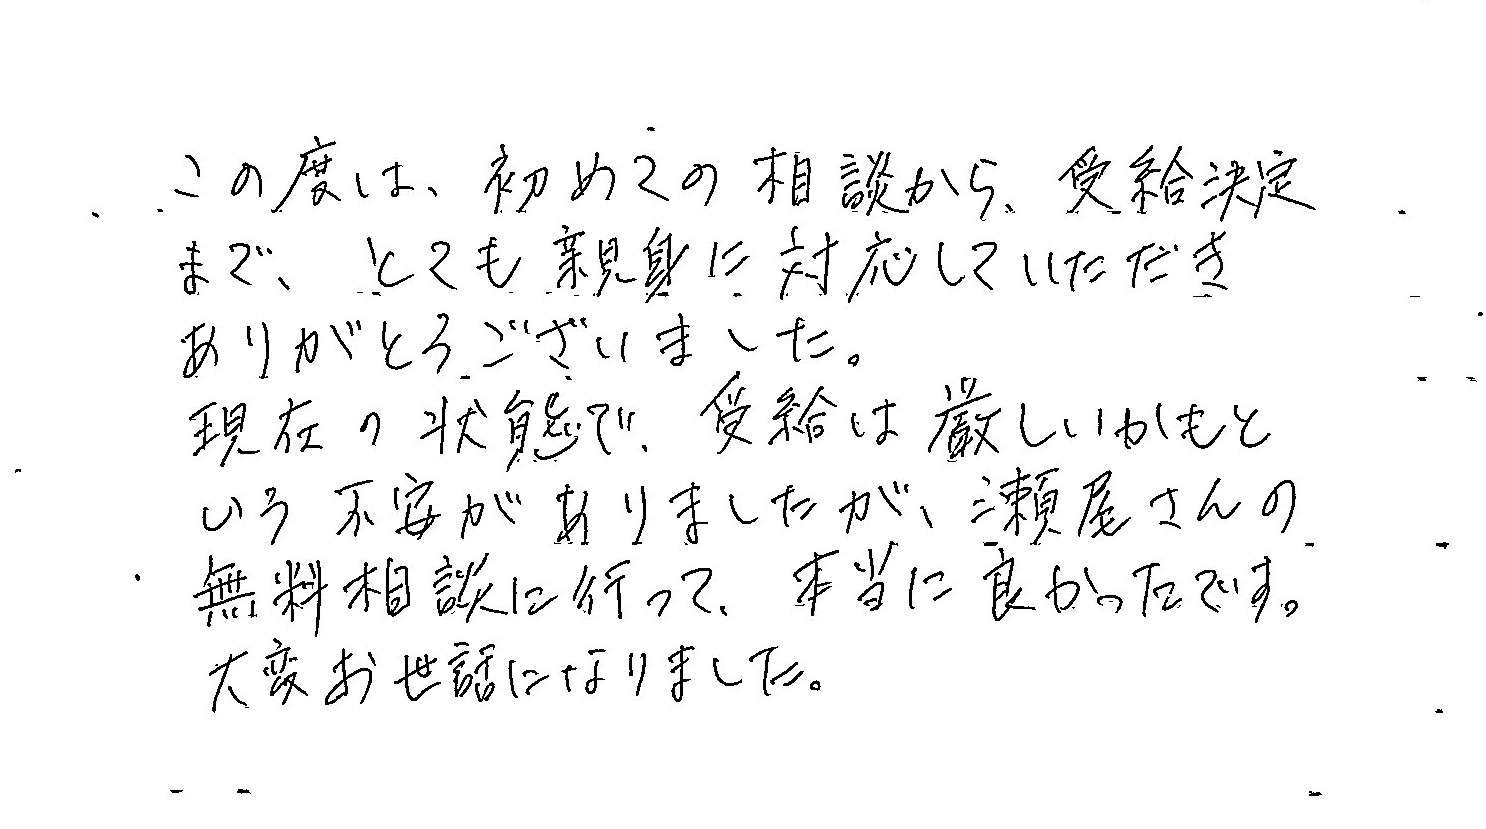 この度は、初めての相談から、受給決定
まで、とても親身に対応していただき
ありがとうございました。
現在の状態で、受給は厳しいかもと
いう不安がありましたが、瀬尾さんの
無料相談に行って、本当に良かったです。
大変お世話になりました。